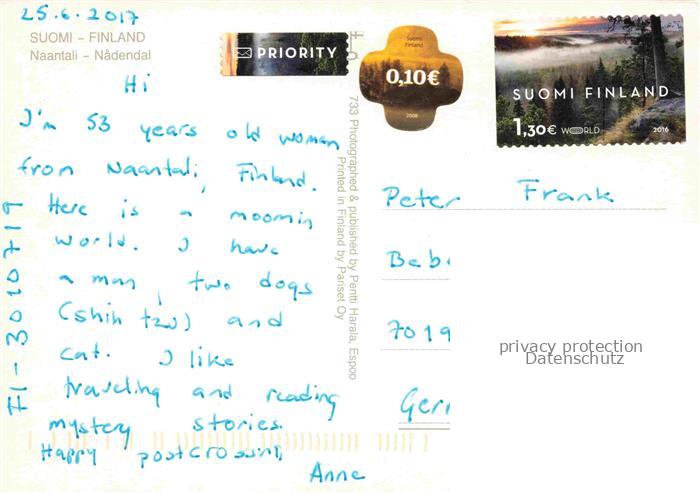 25.6.2017
SUOMI – FINLAND
Naantali – Nådendal
Hi
I'm 53 years old woman
from Naantali, Finland.
Here is a moomin
world. I have
a man, two dogs
(shih tzu) and
cat. I like
traveling and reading
mystery stories.
Happy postcrossing
Anne
FI-3010719
PRIORITY
Suomi
Finland
0,10€
2008
SUOMI FINLAND
1,30€ WORLD
2016
733 Photographed & published by Pentti Harala, Espoo
Printed in Finland by Pariset Oy
Peter Frank
Beb
7019
Ger
privacy protection
Datenschutz